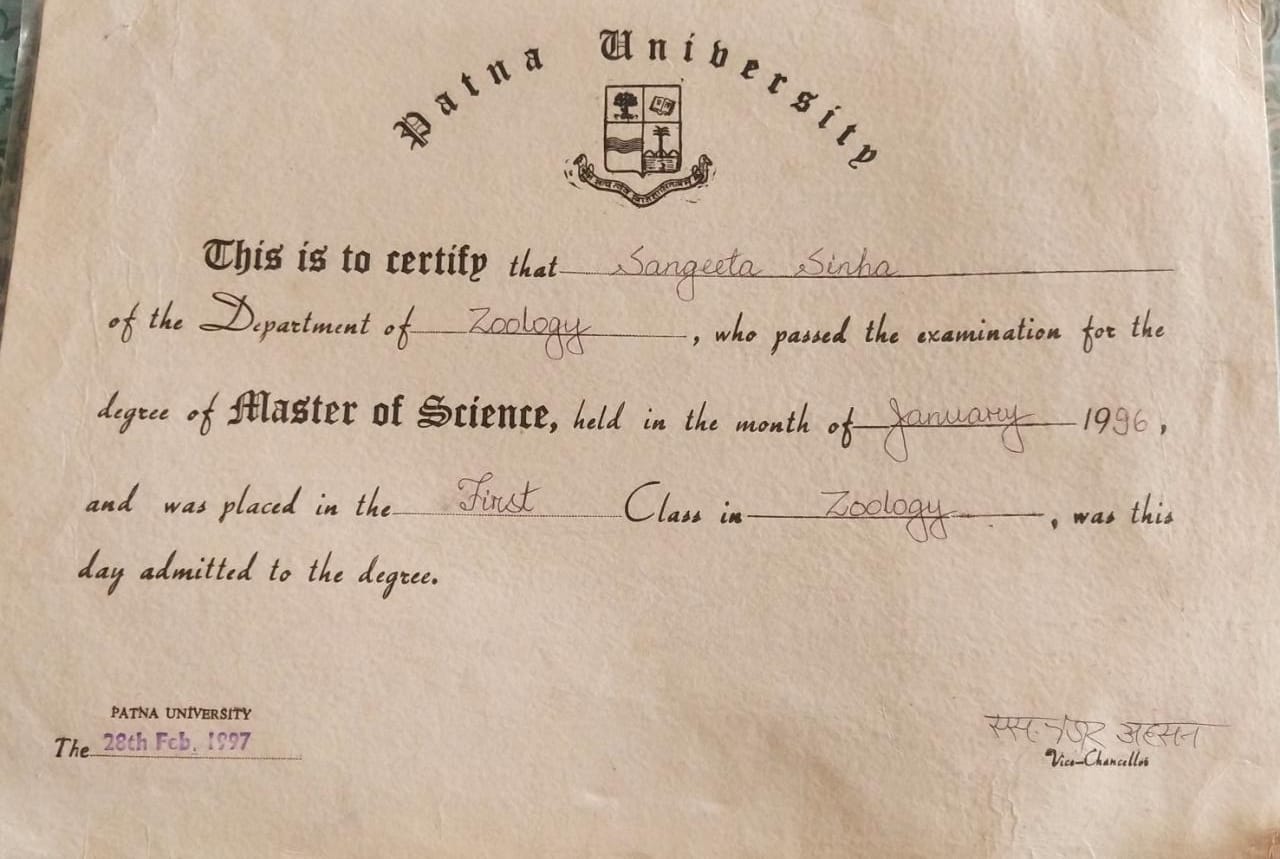 Patna University
This is to certify that Sangeeta Sinha
of the Department of Zoology, who passed the examination for the
degree of Master of Science, held in the month of January 1996,
and was placed in the First Class in Zoology, was this
day admitted to the degree.
PATNA UNIVERSITY
The 28th Feb. 1997
अहसन
Vice-Chancellor